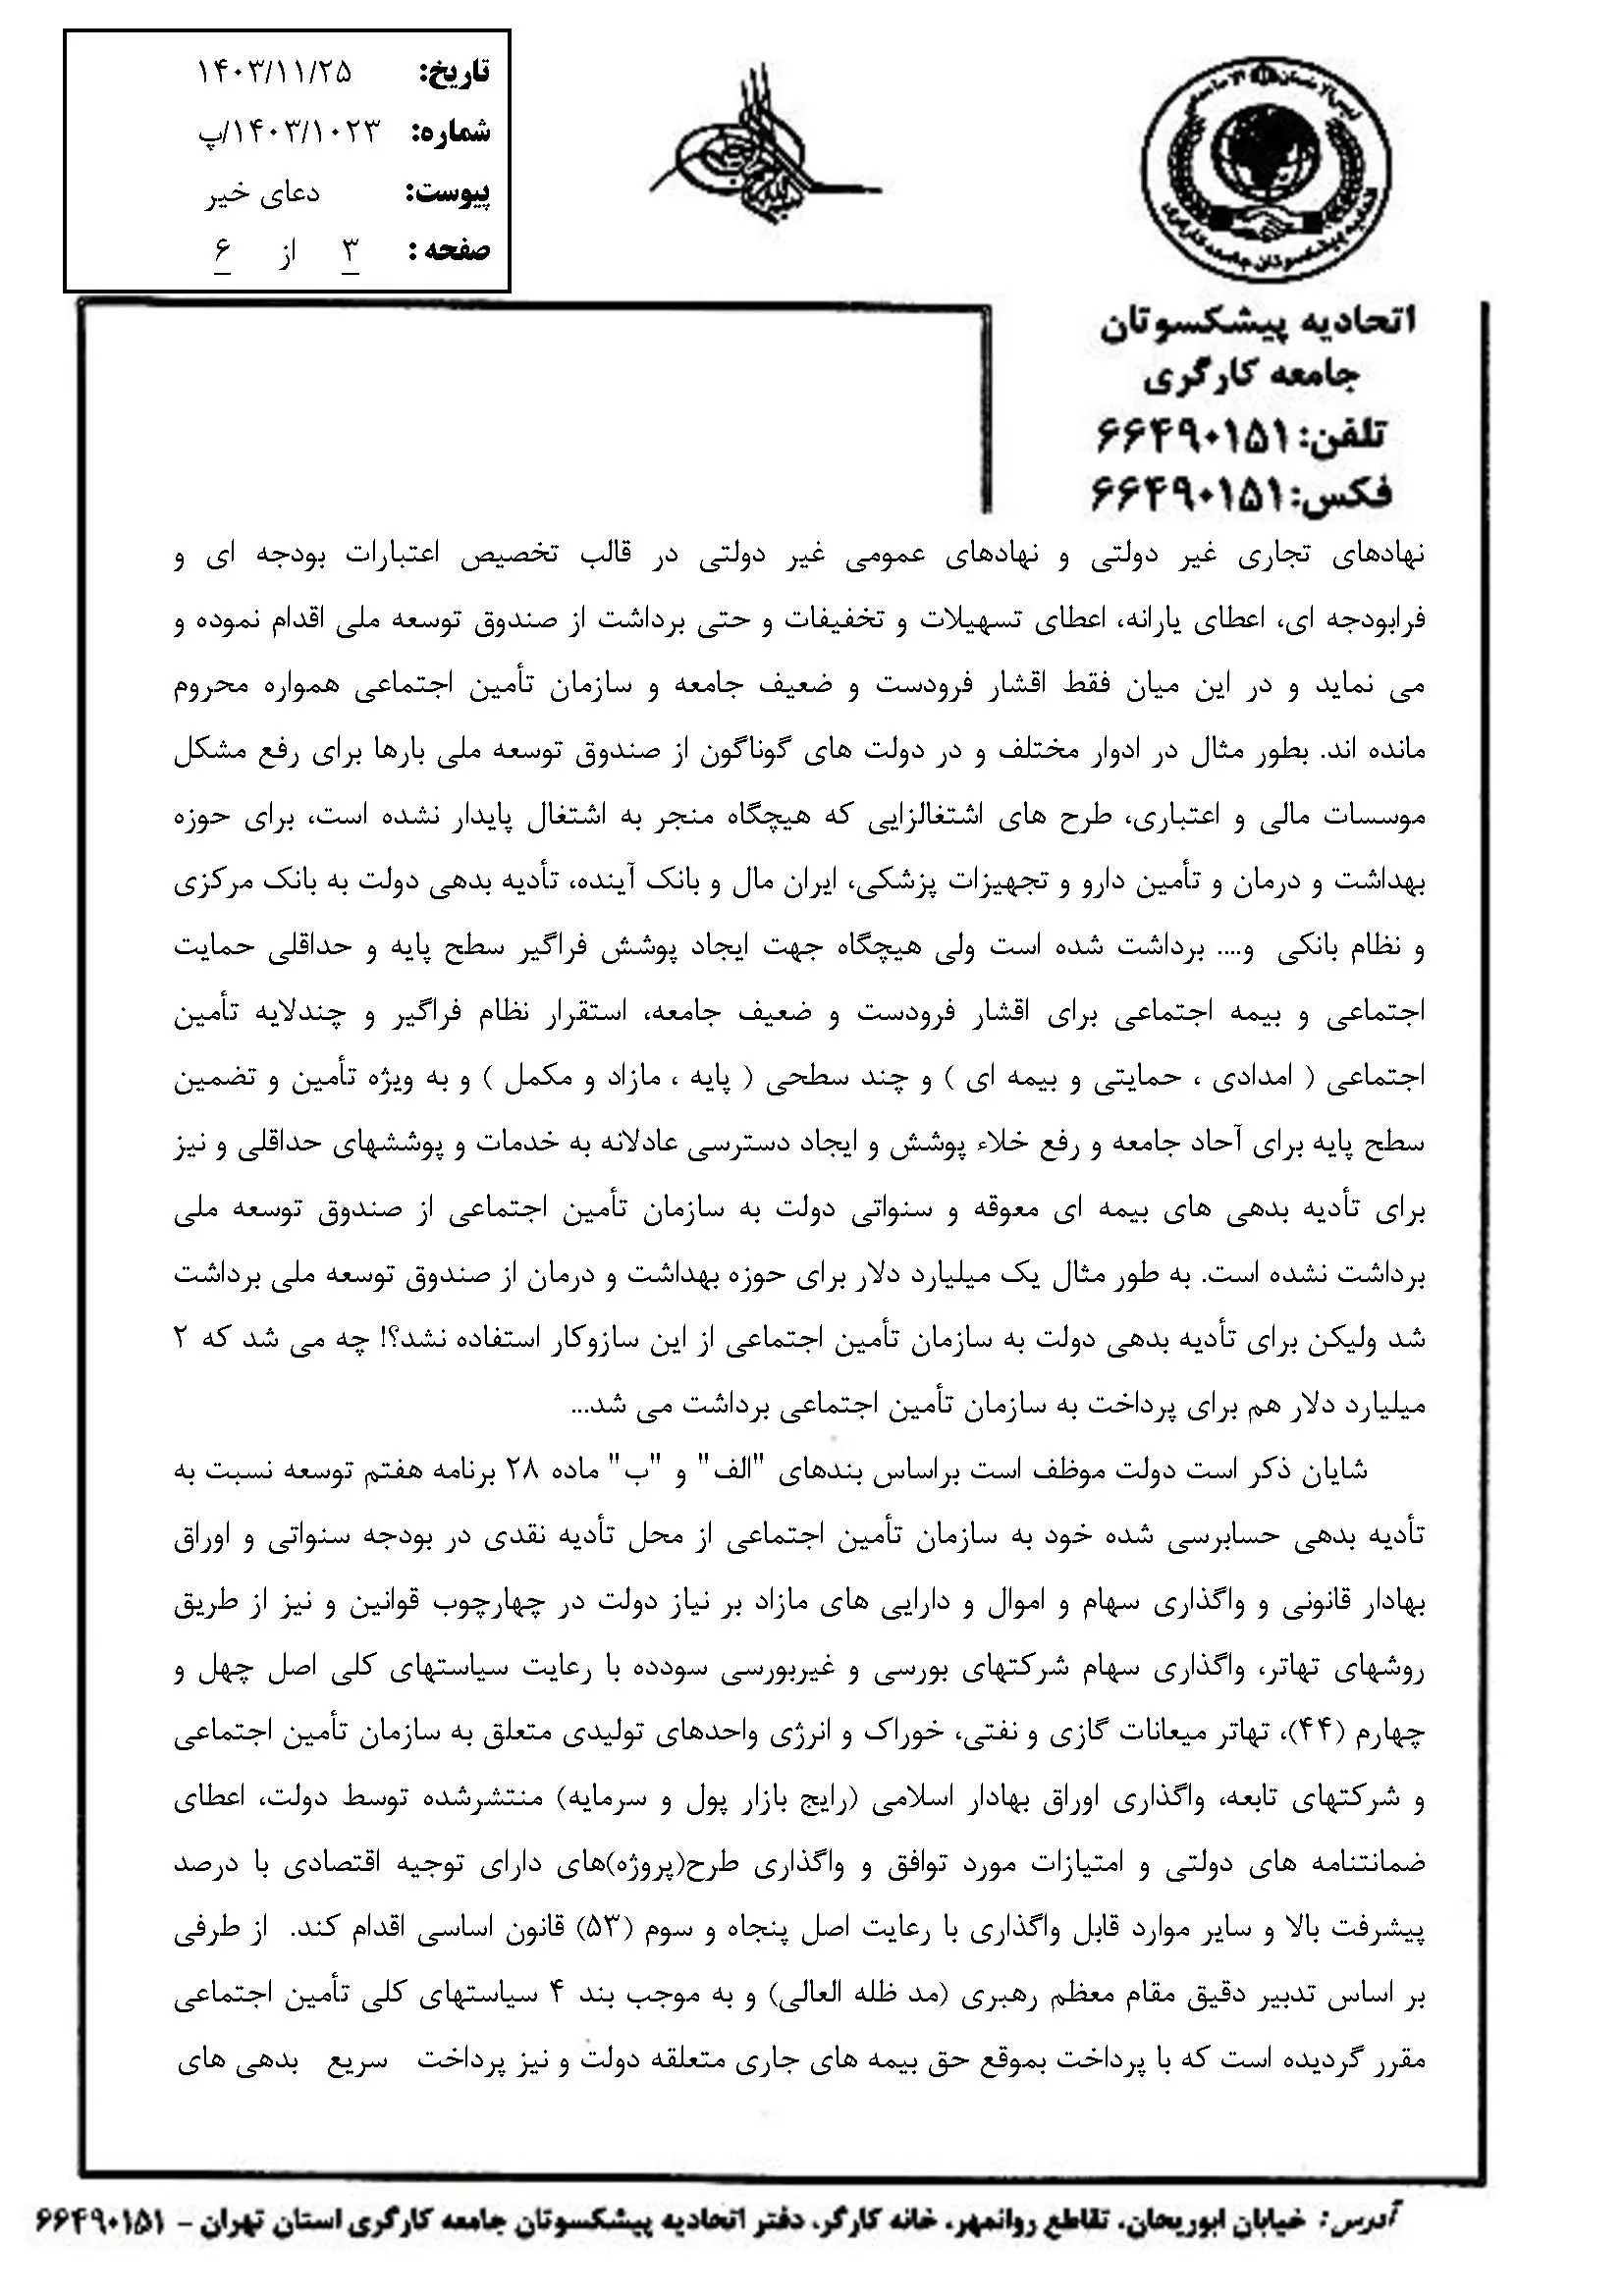 تاریخ: ۱۴۰۳/۱۱/۲۵
شماره: ۱۴۰۳/۱۰۲۳/پ
پیوست: دعای خیر
صفحه : ۳ از ۶
اتحادیه پیشکسوتان جامعه کارگری
اتحادیه پیشکسوتان
جامعه کارگری
تلفن: ۶۶۴۹۰۱۵۱
فکس: ۶۶۴۹۰۱۵۱
نهادهای تجاری غیر دولتی و نهادهای عمومی غیر دولتی در قالب تخصیص اعتبارات بودجه ای و
فرابودجه ای، اعطای یارانه، اعطای تسهیلات و تخفیفات و حتی برداشت از صندوق توسعه ملی اقدام نموده و
می نماید و در این میان فقط اقشار فرودست و ضعیف جامعه و سازمان تأمین اجتماعی همواره محروم
مانده اند. بطور مثال در ادوار مختلف و در دولت های گوناگون از صندوق توسعه ملی بارها برای رفع مشکل
موسسات مالی و اعتباری، طرح های اشتغالزایی که هیچگاه منجر به اشتغال پایدار نشده است، برای حوزه
بهداشت و درمان و تأمین دارو و تجهیزات پزشکی، ایران مال و بانک آینده، تأدیه بدهی دولت به بانک مرکزی
و نظام بانکی و.... برداشت شده است ولی هیچگاه جهت ایجاد پوشش فراگیر سطح پایه و حداقلی حمایت
اجتماعی و بیمه اجتماعی برای اقشار فرودست و ضعیف جامعه، استقرار نظام فراگیر و چندلایه تأمین
اجتماعی ( امدادی ، حمایتی و بیمه ای ) و چند سطحی ( پایه ، مازاد و مکمل ) و به ویژه تأمین و تضمین
سطح پایه برای آحاد جامعه و رفع خلاء پوشش و ایجاد دسترسی عادلانه به خدمات و پوششهای حداقلی و نیز
برای تأدیه بدهی های بیمه ای معوقه و سنواتی دولت به سازمان تأمین اجتماعی از صندوق توسعه ملی
برداشت نشده است. به طور مثال یک میلیارد دلار برای حوزه بهداشت و درمان از صندوق توسعه ملی برداشت
شد ولیکن برای تأدیه بدهی دولت به سازمان تأمین اجتماعی از این سازوکار استفاده نشد؟! چه می شد که ۲
میلیارد دلار هم برای پرداخت به سازمان تأمین اجتماعی برداشت می شد...
شایان ذکر است دولت موظف است براساس بندهای "الف" و "ب" ماده ۲۸ برنامه هفتم توسعه نسبت به
تأدیه بدهی حسابرسی شده خود به سازمان تأمین اجتماعی از محل تأدیه نقدی در بودجه سنواتی و اوراق
بهادار قانونی و واگذاری سهام و اموال و دارایی های مازاد بر نیاز دولت در چهارچوب قوانین و نیز از طریق
روشهای تهاتر، واگذاری سهام شرکتهای بورسی و غیربورسی سودده با رعایت سیاستهای کلی اصل چهل و
چهارم (۴۴)، تهاتر میعانات گازی و نفتی، خوراک و انرژی واحدهای تولیدی متعلق به سازمان تأمین اجتماعی
و شرکتهای تابعه، واگذاری اوراق بهادار اسلامی (رایج بازار پول و سرمایه) منتشرشده توسط دولت، اعطای
ضمانتنامه های دولتی و امتیازات مورد توافق و واگذاری طرح(پروژه)های دارای توجیه اقتصادی با درصد
پیشرفت بالا و سایر موارد قابل واگذاری با رعایت اصل پنجاه و سوم (۵۳) قانون اساسی اقدام کند. از طرفی
بر اساس تدبیر دقیق مقام معظم رهبری (مد ظله العالی) و به موجب بند ۴ سیاستهای کلی تأمین اجتماعی
مقرر گردیده است که با پرداخت بموقع حق بیمه های جاری متعلقه دولت و نیز پرداخت سریع بدهی های
آدرس: خیابان ابوریحان، تقاطع روانمهر، خانه کارگر، دفتر اتحادیه پیشکسوتان جامعه کارگری استان تهران – ۶۶۴۹۰۱۵۱